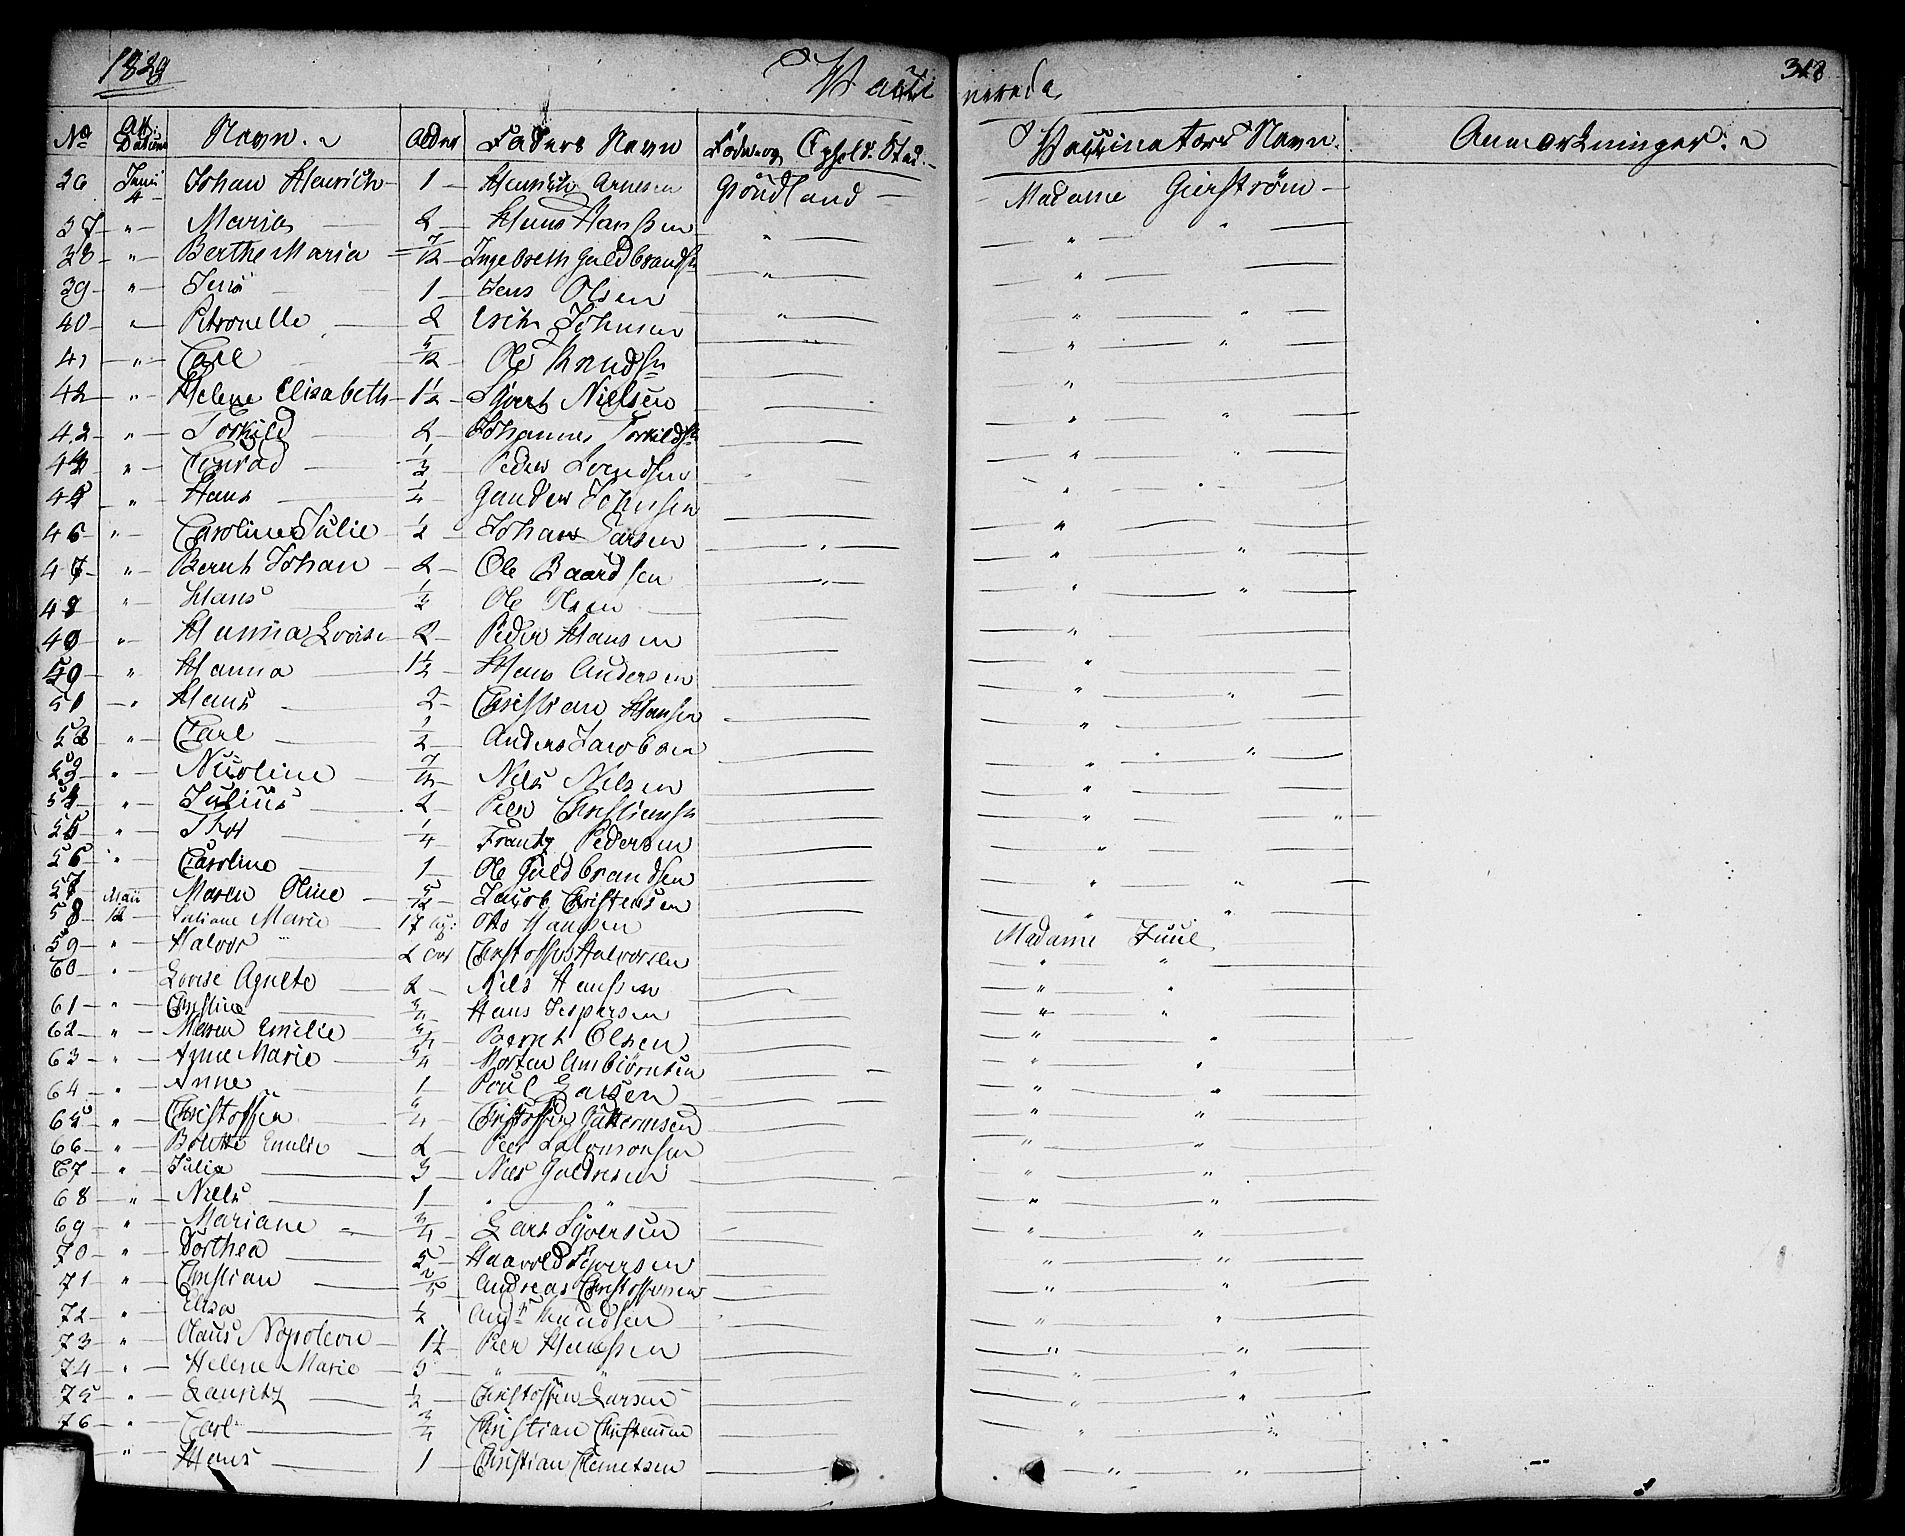 1829 Vacci nerede 348
No Datum Navn. Alder Faders Navn Føde og Ophold. Sted. Vaccinators Navn. Anmærkninger.
36 Junii 4 Johan Henrich 1 Henrich Arnesen Grøndland Madame Gierstrøm
37 " Maria 2 Hans Hanssen " " "
38 " Berthe Maria 7/12 Ingebreth Guldbrands. " "
39 " Jens 1 Jens Olsen " " "
40 " Petronelle 2 Erich Johnsen " " "
41 " Carl 5/12 Ole Knuds. "
42 " Helene Elisabeth 1½ Syvert Nielsen " "
43 " Torkild 2 Johannes Torkilds. " "
44 " Conrad ½ Peder Svendsen " "
45 " Hans ¼ Gunder Johnsen "
46 " Caroline Julie ½ Johan Larsen " " "
47 " Bernt Johan 2 Ole Baardsen " " "
48 " Hans ½ Ole Olsen "
49 " Hanna Lovise 2 Peder Hansen "
50 " Hanna 1½ Hans Andersen " "
51 " Hans 2 Christian Hansen "
52 " Carl ½ Anders Jacobsen " "
53 " Nicoline Nils Nilsen "
54 " Julius 2 Peer Christians. " "
55 " Thor ¼ Frantz Pedersen "
56 " Caroline 1 Ole Guldbrandsen " "
57 " Maren Oline 5/12 Jacob Christensen " "
58 Maii 12 Juliane Marie 17 Otto Hansen Madame Juul
59 " Halvor 2 Christoffer Halvorsen " "
60 " Lovise Agnete 2 Nils Hanssen " "
61 " Christine ¾ Hans Jespersen " "
62 " Maren Emilie ¾ Bernt Olsen " "
63 " Anne Marie ¾ Morten Ambiørnsen "
64 " Anne 1 Poul Larsen " "
65 " Christoffer ¾ Christoffer " "
66 " Bolette Emilie 2 Peer Salomonsen " "
67 " Julia 3 Niels " "
68 " Niels 1 " " " "
69 " Mariane ¾ Lars Syversen " "
70 " Dorthea 5 Haavold Syversen " "
71 " Christian Andreas Christoffersen " "
72 " Elisa ½ Knudsen " "
73 " Claus Napoleon Peer Hanssen " "
74 " Helene Marie 5 " " " "
75 " Lauritz ½ Christoffer Larsen "
76 " Carl ¾ Christian Christensen " "
" Hans 1 Christian Clemetsen " "